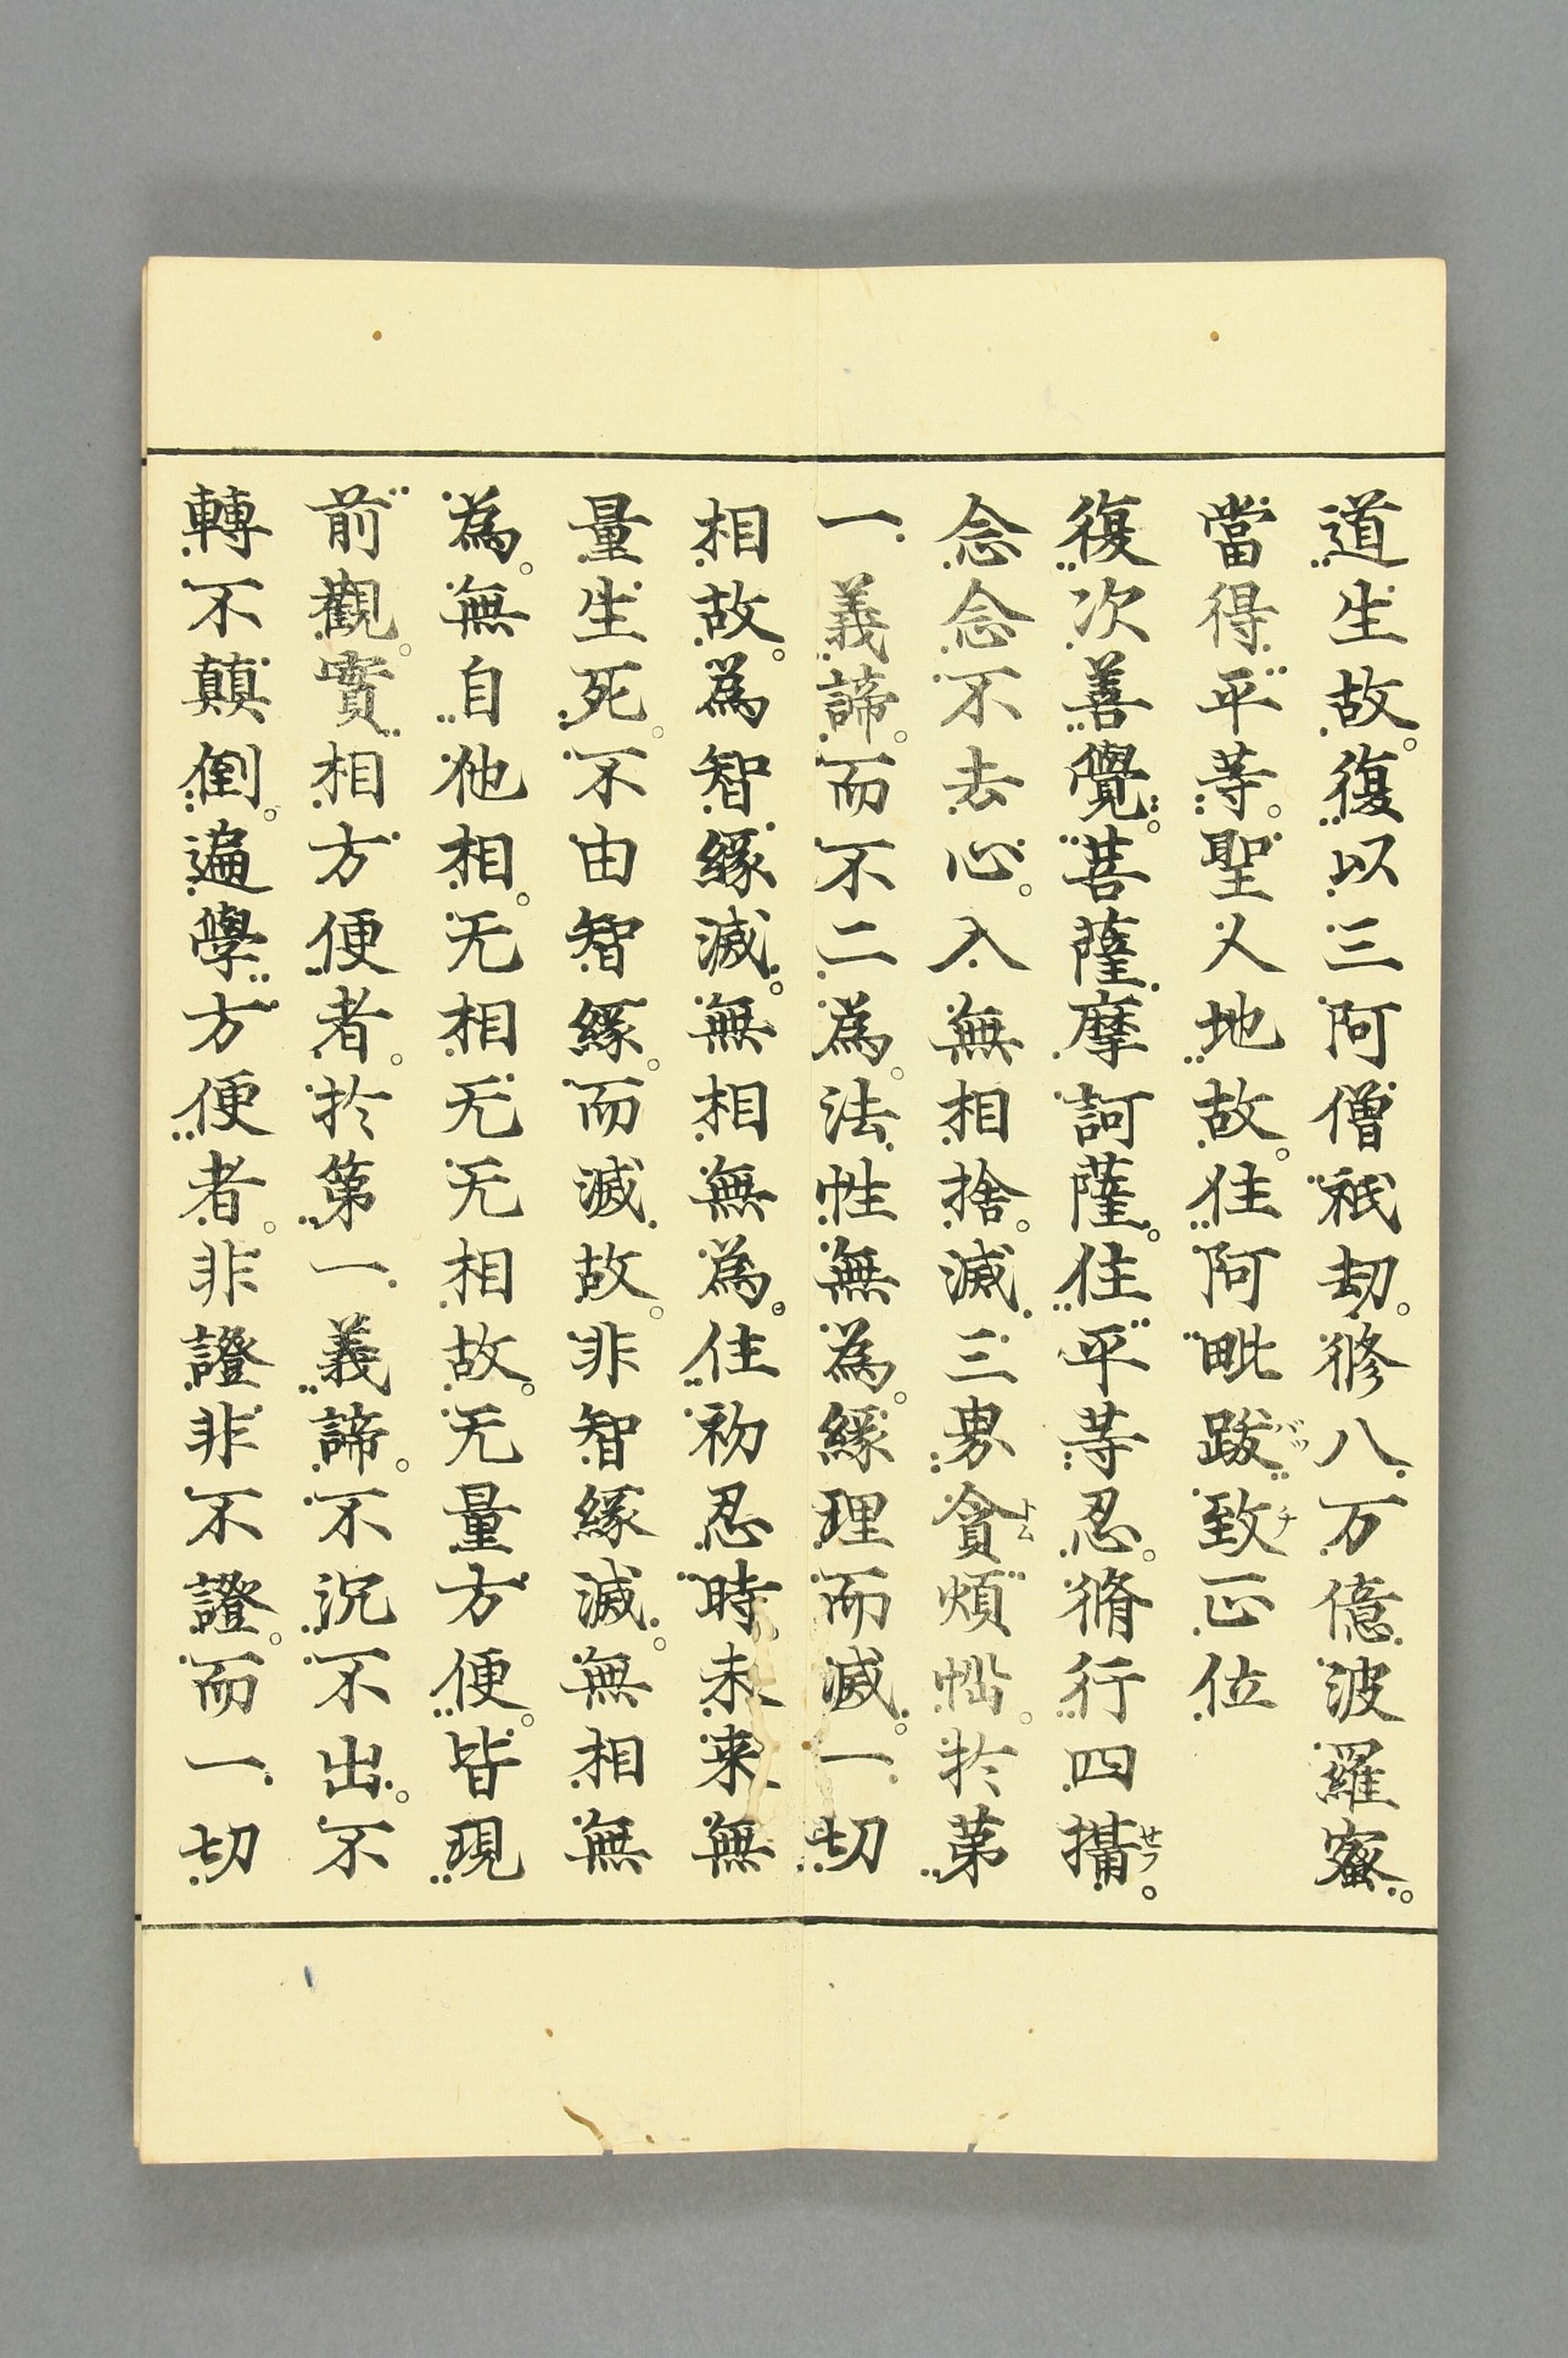 道生故。復以三阿僧祇劫。修八万億波羅蜜。
當得平等。聖人地故。住阿毗跋致正位
復次善覺。菩薩摩訶薩。住平等忍。脩行四攝。
念念不去心。入無相捨。滅三界貪煩惱。於第
一義諦。而不二為。法性無為。緣理而滅。一切
相故。為智緣滅。無相無為。住初忍時。未来無
量生死。不由智緣。而滅故。非智緣滅。無相無
為。無自他相。无相无无相故。无量方便。皆現
前觀。實相方便者。於第一義諦。不沉不出。不
轉不顛倒。遍學方便者。非證非不證。而一切
バツ
チ
トム
セフ